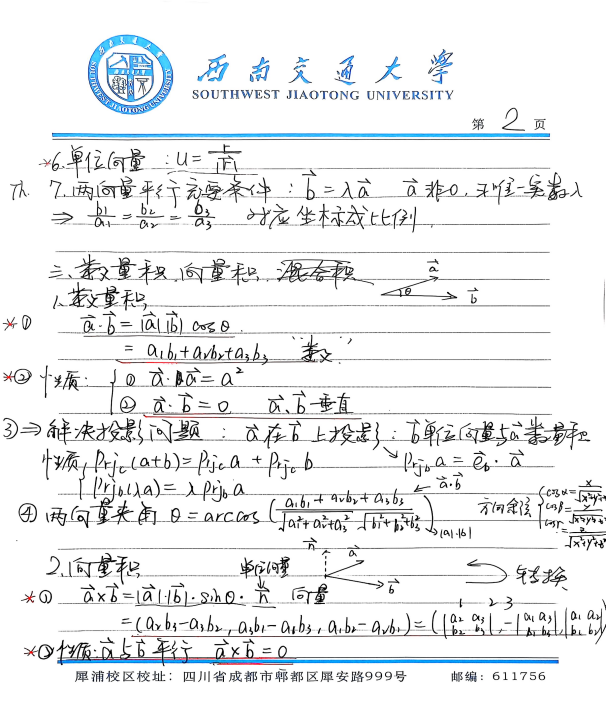 西南交通大学
SOUTHWEST JIAOTONG UNIVERSITY
第 2 页
*6.单位向量 : u = r/|r|
Th. 7.两向量平行充要条件 : b = λa a非0, 有唯一实数λ
⇒ b₁/a₁ = b₂/a₂ = b₃/a₃ 对应坐标成比例
三、数量积, 向量积, 混合积
a θ b
1.数量积
*① a·b = |a||b| cosθ
= a₁b₁+a₂b₂+a₃b₃ "数"
*② 性质: ① a·a = a²
② a·b = 0 a、b垂直
③ ⇒ 解决投影问题 : a在b上投影 : b单位向量与a数量积
性质 Prj_c(a+b) = Prj_c a + Prj_c b Prj_b a = e_b · a
Prj_b(λa) = λ Prj_b a
④ 两向量夹角 θ = arccos( (a₁b₁+a₂b₂+a₃b₃) / (√(a₁²+a₂²+a₃²) √(b₁²+b₂²+b₃²)) ) → a·b → |a|·|b|
方向余弦 cosα = x/√(x²+y²+z²)
cosβ = y/√(x²+y²+z²)
cosγ = z/√(x²+y²+z²)
2.向量积 单位向量 n a b 转换
*① a×b = |a|·|b|·sinθ·n 向量
= (a₂b₃-a₃b₂, a₃b₁-a₁b₃, a₁b₂-a₂b₁) = (|a₂ a₃; b₂ b₃|, -|a₁ a₃; b₁ b₃|, |a₁ a₂; b₁ b₂|) 1 2 3
*② 性质: a与b平行 a×b = 0
犀浦校区校址: 四川省成都市郫都区犀安路999号 邮编: 611756